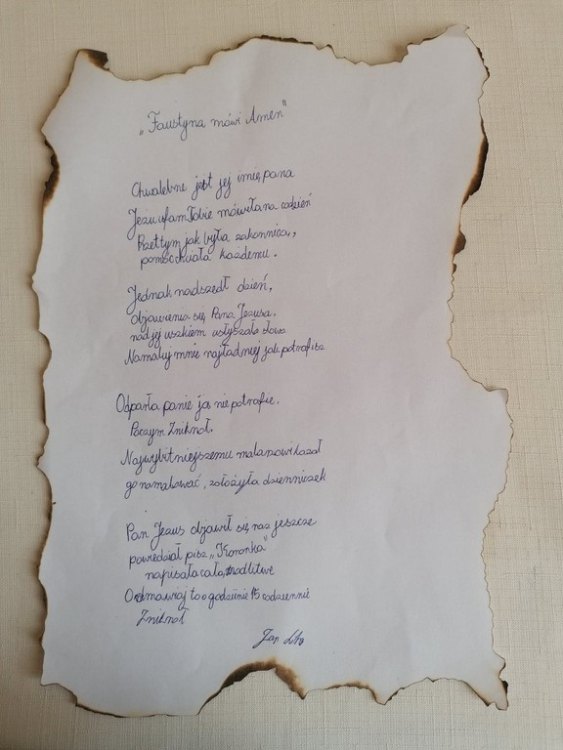 „Faustyna mówi Amen"
Chwalebne jest jej imię, pana
Jezu ufam Tobie mówiła na codzień
Przettym jak była zakonnica,
pomóc chciała każdemu.
Jednak nadszedł dzień,
objawienia się Pana Jezusa.
nad jej uszkiem usłyszała słowa
Namaluj mnie najładniej jak potrafisz
Odparła panie ja nie potrafie.
Poczym Zniknoł.
Najwybitniejszemu malarzowi kazał
go namalować, założyła dzienniczek
Pan Jezus objawił się naz jeszcze
powiedział pisz „Koronka"
napisała całą modlitwe
Odmawiaj to o godzinie 15 codziennie
Zniknoł
Jan